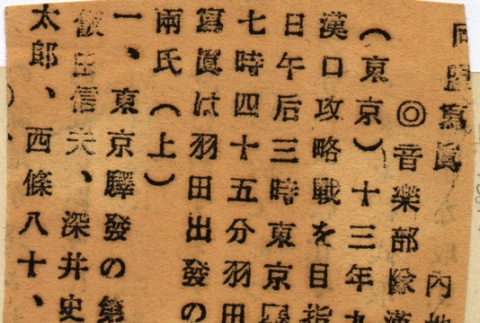 同盟寫眞 內地
◎音樂部隊漢
(東京)十三年九
漢口攻略戰を目指
日午后三時東京驛
七時四十五分羽田
寫眞は羽田出發の
兩氏(上)
一、東京驛發の第
飯田信夫、深井史
太郎、西條八十、